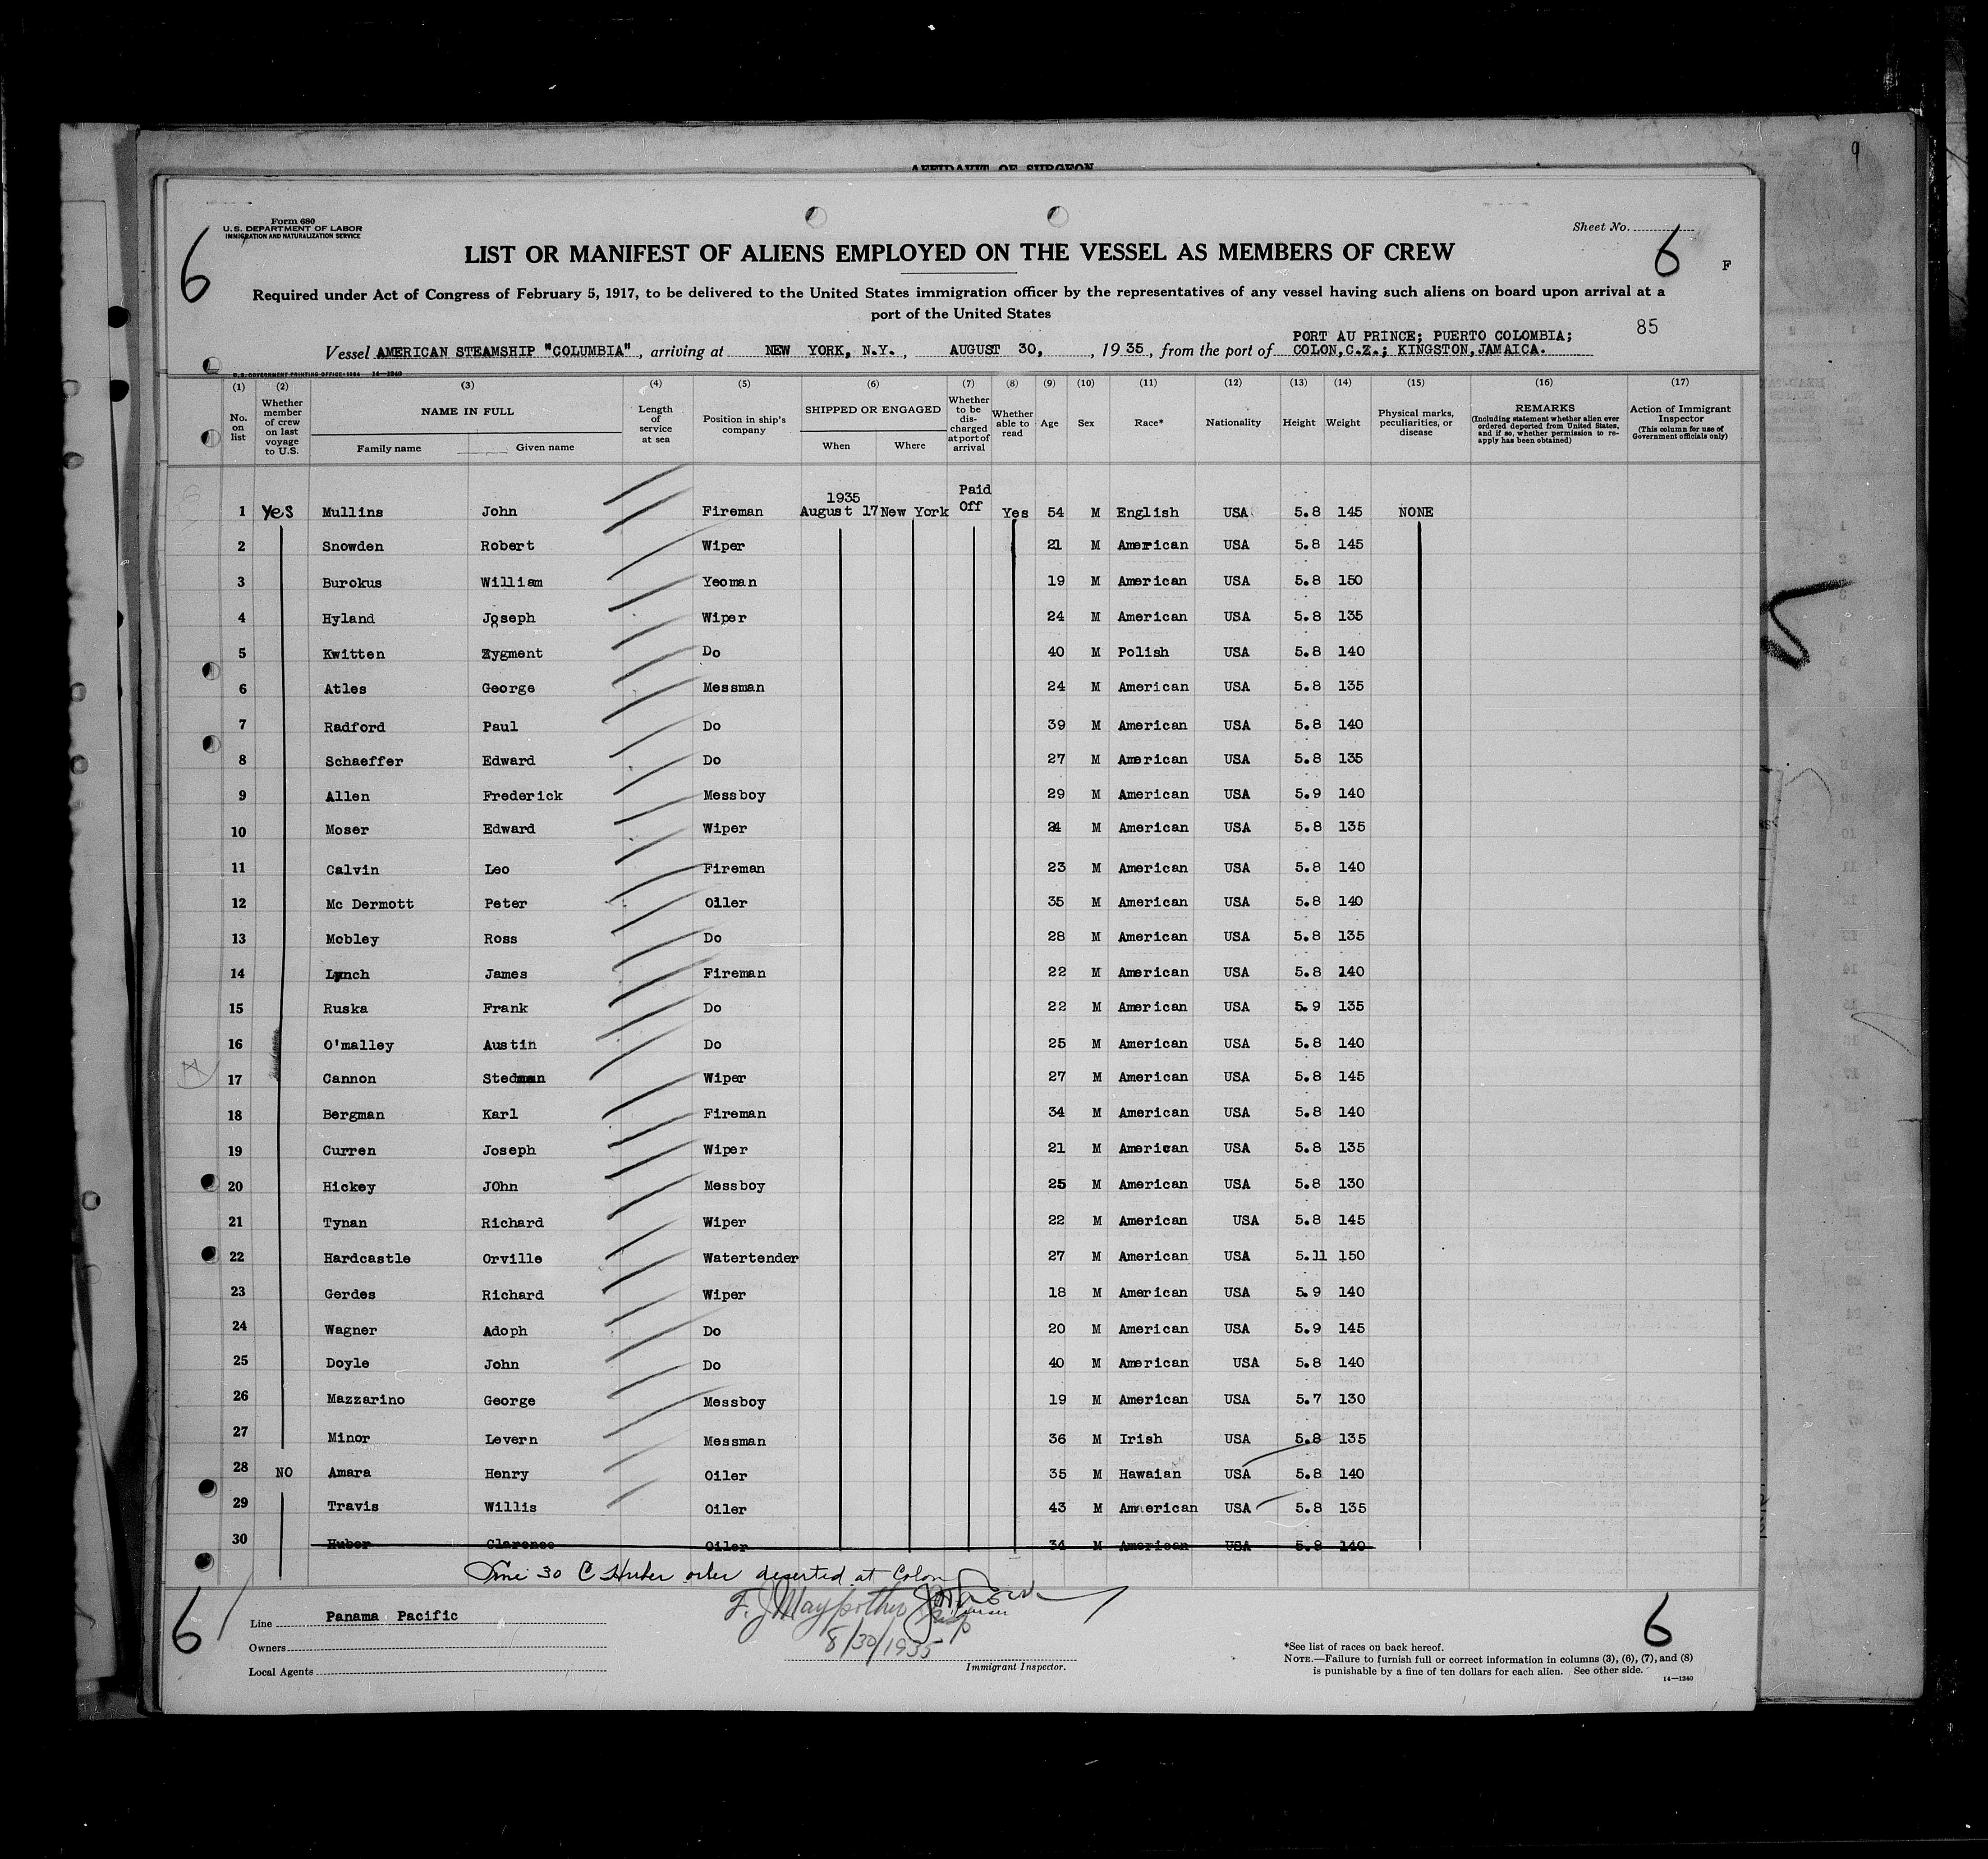 AFFIDAVIT OF SURGEON
9
Form 680
U.S. DEPARTMENT OF LABOR
IMMIGRATION AND NATURALIZATION SERVICE
Sheet No.
6
6
F
LIST OR MANIFEST OF ALIENS EMPLOYED ON THE VESSEL AS MEMBERS OF CREW
Required under Act of Congress of February 5, 1917, to be delivered to the United States immigration officer by the representatives of any vessel having such aliens on board upon arrival at a
port of the United States
85
PORT AU PRINCE; PUERTO COLOMBIA;
Vessel AMERICAN STEAMSHIP "COLUMBIA", arriving at NEW YORK, N.Y., AUGUST 30, , 1935, from the port of COLON,C.Z.; KINGSTON,JAMAICA.
U.S. GOVERNMENT PRINTING OFFICE: 1934 14—1240
(1) (2) (3) (4) (5) (6) (7) (8) (9) (10) (11) (12) (13) (14) (15) (16) (17)
No. on list
Whether member of crew on last voyage to U.S.
NAME IN FULL
Family name Given name
Length of service at sea
Position in ship's company
SHIPPED OR ENGAGED
When Where
Whether to be discharged at port of arrival
Whether able to read
Age
Sex
Race*
Nationality
Height
Weight
Physical marks, peculiarities, or disease
REMARKS
(Including statement whether alien ever ordered deported from United States, and if so, whether permission to reapply has been obtained)
Action of Immigrant Inspector
(This column for use of Government officials only)
1 Yes Mullins John Fireman 1935 August 17 New York Paid Off Yes 54 M English USA 5.8 145 NONE
2 Snowden Robert Wiper 21 M American USA 5.8 145
3 Burokus William Yeoman 19 M American USA 5.8 150
4 Hyland Joseph Wiper 24 M American USA 5.8 135
5 Kwitten Zygment Do 40 M Polish USA 5.8 140
6 Atles George Messman 24 M American USA 5.8 135
7 Radford Paul Do 39 M American USA 5.8 140
8 Schaeffer Edward Do 27 M American USA 5.8 135
9 Allen Frederick Messboy 29 M American USA 5.9 140
10 Moser Edward Wiper 24 M American USA 5.8 135
11 Calvin Leo Fireman 23 M American USA 5.8 140
12 Mc Dermott Peter Oiler 35 M American USA 5.8 140
13 Mobley Ross Do 28 M American USA 5.8 135
14 Lynch James Fireman 22 M American USA 5.8 140
15 Ruska Frank Do 22 M American USA 5.9 135
16 O'malley Austin Do 25 M American USA 5.8 140
17 Cannon Stedman Wiper 27 M American USA 5.8 145
18 Bergman Karl Fireman 34 M American USA 5.8 140
19 Curren Joseph Wiper 21 M American USA 5.8 135
20 Hickey JOhn Messboy 25 M American USA 5.8 130
21 Tynan Richard Wiper 22 M American USA 5.8 145
22 Hardcastle Orville Watertender 27 M American USA 5.11 150
23 Gerdes Richard Wiper 18 M American USA 5.9 140
24 Wagner Adoph Do 20 M American USA 5.9 145
25 Doyle John Do 40 M American USA 5.8 140
26 Mazzarino George Messboy 19 M American USA 5.7 130
27 Minor Levern Messman 36 M Irish USA 5.8 135
28 NO Amara Henry Oiler 35 M Hawaian USA 5.8 140
29 Travis Willis Oiler 43 M American USA 5.8 135
30 Huber Clarence Oiler 34 M American USA 5.8 140
Line 30 C Huber oiler deserted at Colon
6
Line Panama Pacific
Owners
Local Agents
F. J. Maypother
8/30/1935
Immigrant Inspector.
6
*See list of races on back hereof.
NOTE.—Failure to furnish full or correct information in columns (3), (6), (7), and (8)
is punishable by a fine of ten dollars for each alien. See other side.
14—1240